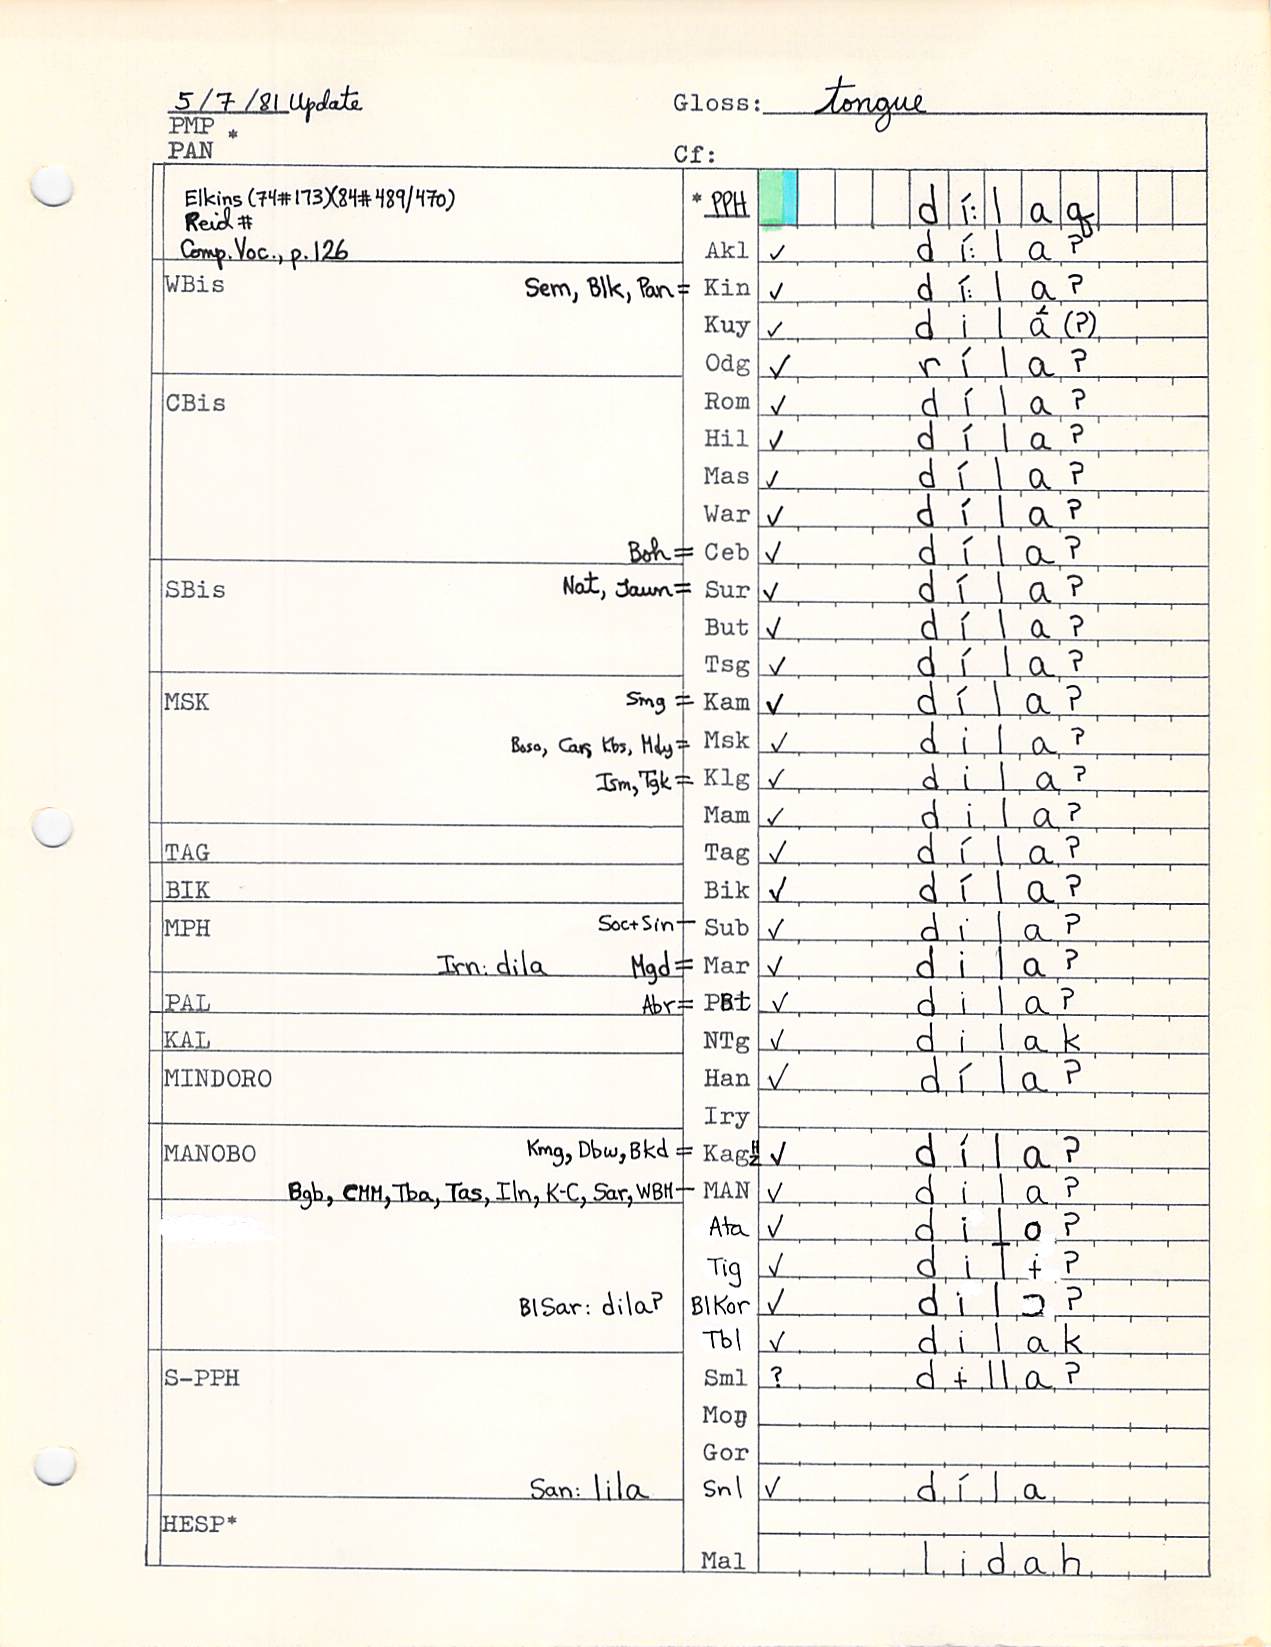 5/7/81 Update Gloss: tongue
PMP *
PAN Cf:
Elkins (74#173)(84#489/470) *PPH dí:lag
Reid #
Comp. Voc., p.126 Akl ✓ dí:laʔ
WBis Sem, Blk, Pan = Kin ✓ dí:laʔ
Kuy ✓ dilá(ʔ)
Odg ✓ rílaʔ
CBis Rom ✓ dílaʔ
Hil ✓ dílaʔ
Mas ✓ dílaʔ
War ✓ dílaʔ
Boh = Ceb ✓ dílaʔ
SBis Nat, Jaun = Sur ✓ dílaʔ
But ✓ dílaʔ
Tsg ✓ dílaʔ
MSK Smg = Kam ✓ dílaʔ
Boso, Car, Kbs, Mdy = Msk ✓ dilaʔ
Ism, Tgk = Klg ✓ dilaʔ
Mam ✓ dilaʔ
TAG Tag ✓ dílaʔ
BIK Bik ✓ dílaʔ
MPH Soc+Sin — Sub ✓ dilaʔ
Irn: dila Mgd = Mar ✓ dilaʔ
PAL Abr = PBt ✓ dilaʔ
KAL NTg ✓ dilak
MINDORO Han ✓ dílaʔ
Iry
MANOBO Kmg, Dbw, Bkd = Kag ✓ dílaʔ
Bgb, CMM, Tba, Tas, Iln, K-C, Sar, WBM — MAN ✓ dilaʔ
Ata ✓ diloʔ
Tig ✓ dilɨʔ
BlSar: dilaʔ BlKor ✓ dilɔʔ
Tbl ✓ dilak
S-PPH Sml ? dɨllaʔ
Moŋ
Gor
San: lila Snl ✓ díla
HESP*
Mal lidah